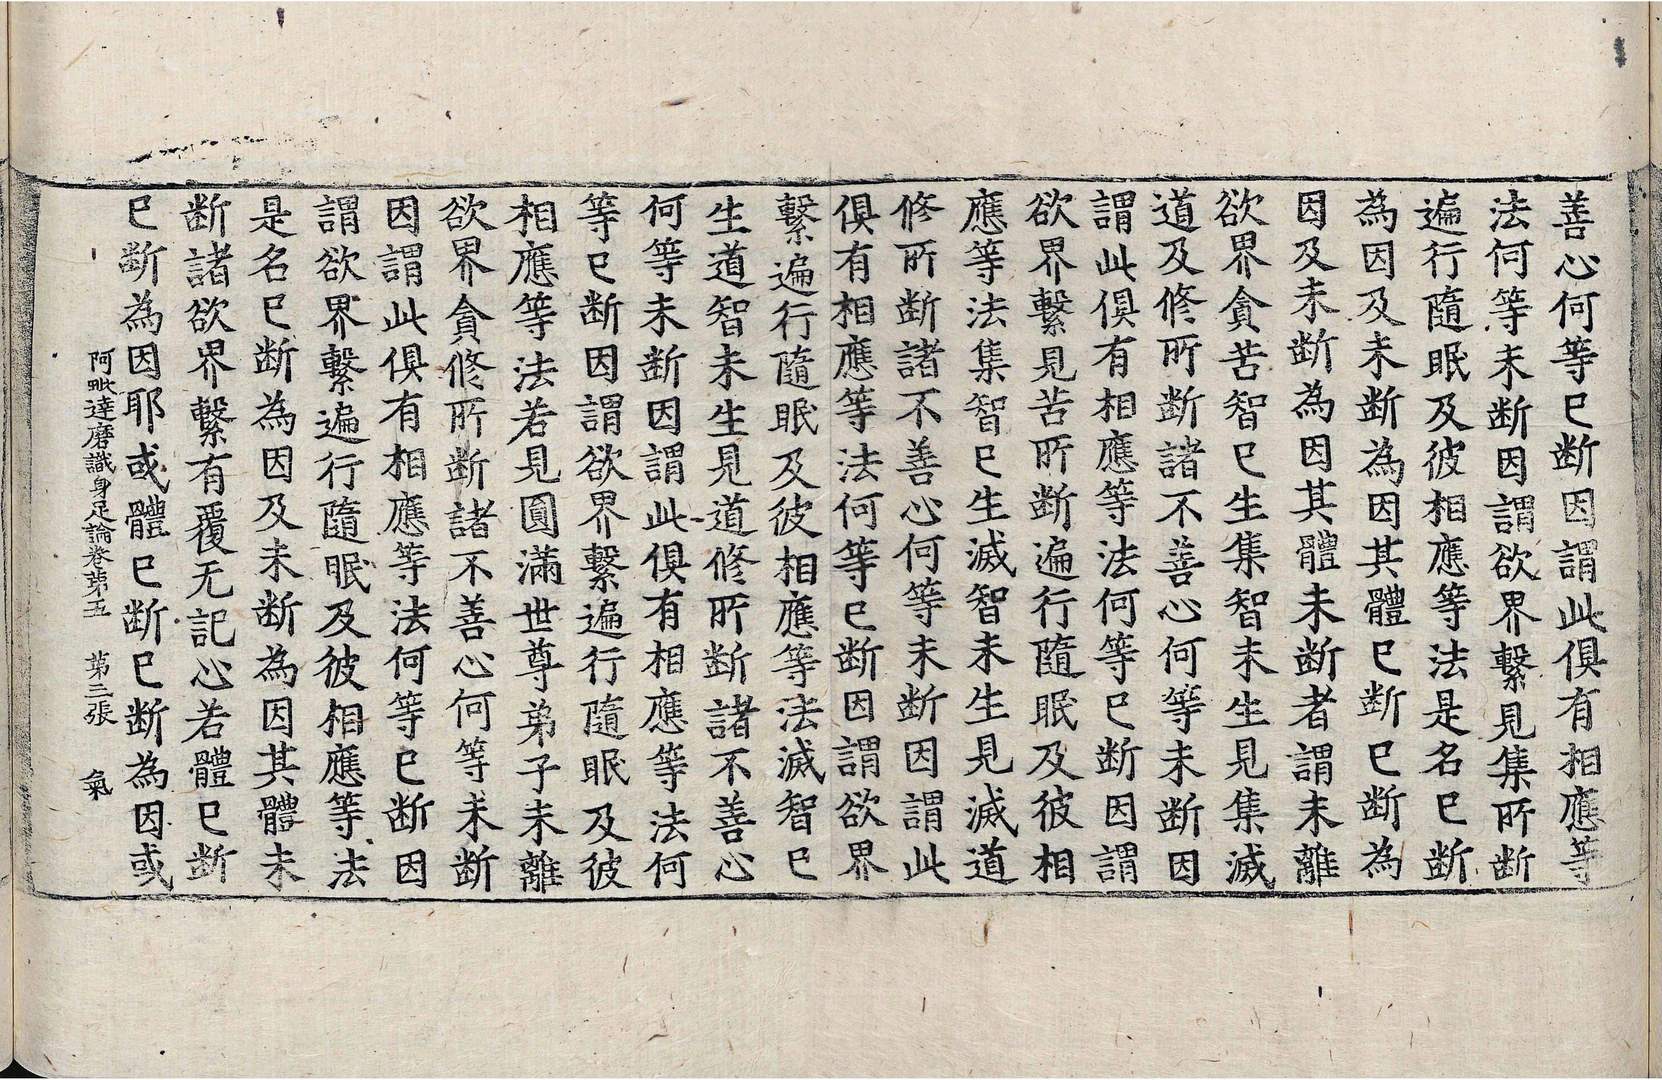 善心何等已斷因謂此俱有相應等
法何等未斷因謂欲界繫見集所斷
遍行隨眠及彼相應等法是名已斷
為因及未斷為因其體已斷已斷為
因及未斷為因其體未斷者謂未離
欲界貪苦智已生集智未生見集滅
道及修所斷諸不善心何等未斷因
謂此俱有相應等法何等已斷因謂
欲界繫見苦所斷遍行隨眠及彼相
應等法集智已生滅智未生見滅道
修所斷諸不善心何等未斷因謂此
俱有相應等法何等已斷因謂欲界
繫遍行隨眠及彼相應等法滅智已
生道智未生見道修所斷諸不善心
何等未斷因謂此俱有相應等法何
等已斷因謂欲界繫遍行隨眠及彼
相應等法若見圓滿世尊弟子未離
欲界貪修所斷諸不善心何等未斷
因謂此俱有相應等法何等已斷因
謂欲界繫遍行隨眠及彼相應等法
是名已斷為因及未斷為因其體未
斷諸欲界繫有覆无記心若體已斷
已斷為因耶或體已斷已斷為因或
阿毗達磨識身足論卷第五 第三張 氣